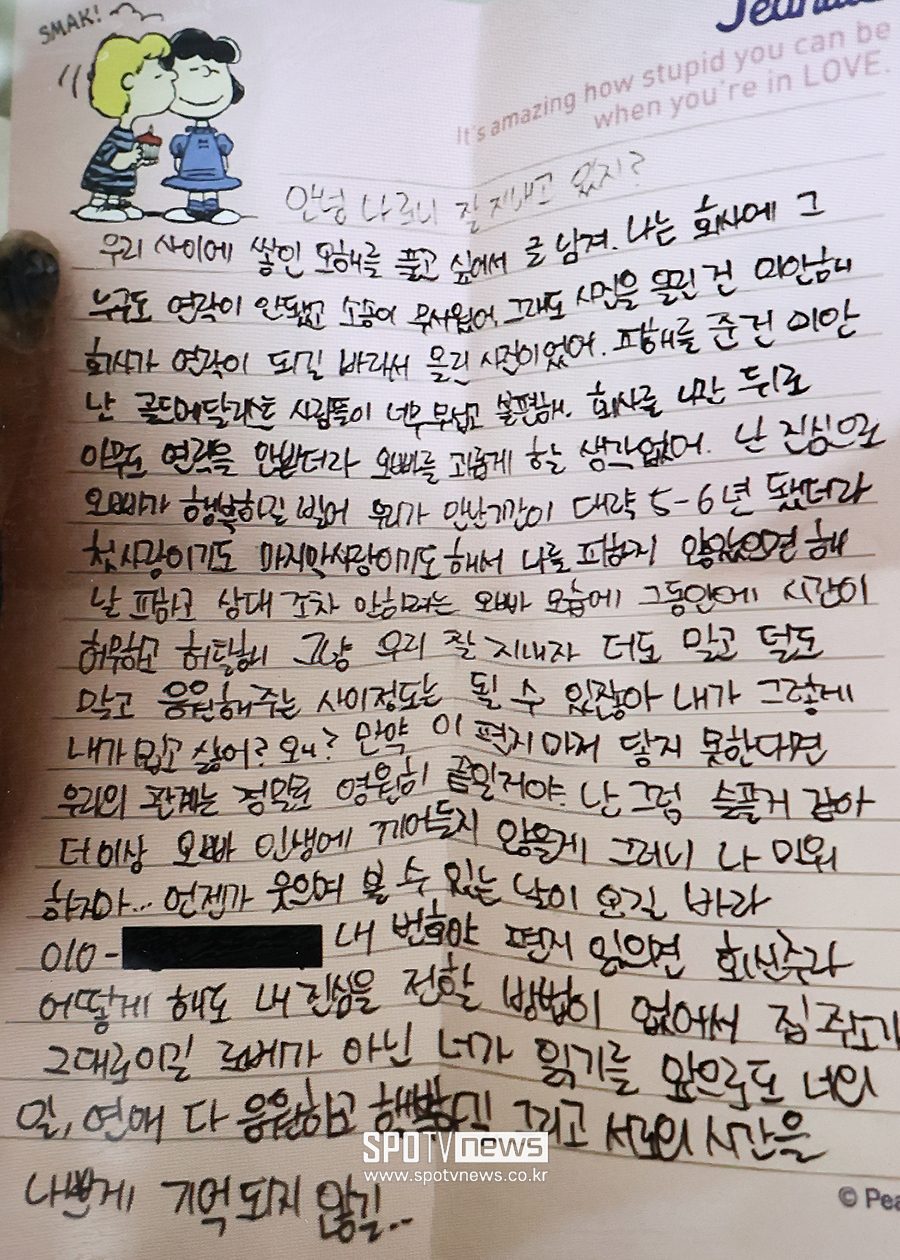 SMAK!
It's amazing how stupid you can be
when you're in LOVE.
안녕 나 론니 잘지내고 있지?
우리 사이에 쌓인 오해를 풀고 싶어서 글 남겨. 나는 회사에 그
누구도 연락이 안됐고 소송이 무서웠어. 그래도 사진을 올린건 미안해
회사가 연락이 되길 바라서 올린 사진이었어. 피해를 준건 미안
난 골드메달리스트 사람들이 너무 무섭고 불편해. 회사를 나간 뒤로
아무도 연락을 안받더라 오빠를 괴롭게 할 생각없어. 난 진심으로
오빠가 행복하길 빌어 우리가 만난기간이 대략 5-6년 됐더라
첫사랑이기도 마지막사랑이기도 해서 나를 피하지 않았으면 해
날 피하고 상대조차 안하려는 오빠 모습에 그동안에 시간이
허무하고 허탈해 그냥 우리 잘 지내자 더도 말고 덜도
말고 응원해주는 사이정도는 될 수 있잖아 내가 그렇게
내가 밉고 싫어? 왜? 만약 이 편지마저 닿지 못한다면
우리의 관계는 정말로 영원히 끝일거야. 난 그럼 슬플거 같아
더이상 오빠 인생에 끼어들지 않을게 그러니 나 미워
하지마... 언젠가 웃으며 볼 수 있는 날이 오길 바라
010- 내 번호야 편지 읽으면 회신주라
어떻게 해도 내 진심을 전할 방법이 없어서 집주소가
그대로이길 로베가 아닌 너가 읽기를 앞으로도 너의
일, 연애 다 응원하고 행복하길 그리고 서로의 시간을
나쁘게 기억되지 않길..
SPOTVnews
www.spotvnews.co.kr